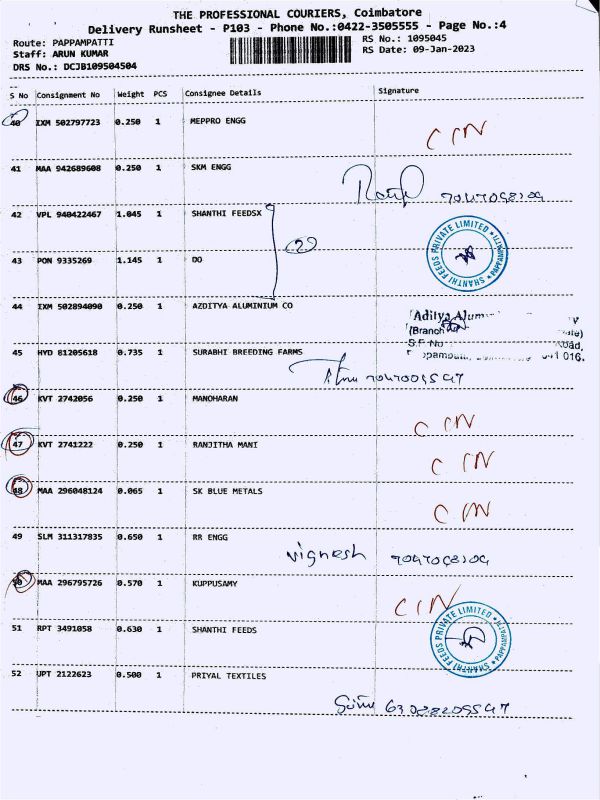 THE PROFESSIONAL COURIERS, Coimbatore
Delivery Runsheet - P103 - Phone No.:0422-3505555 - Page No.:4
Route: PAPPAMPATTI
RS No.: 1095045
Staff: ARUN KUMAR
RS Date: 09-Jan-2023
DRS No.: DCJB109504504
S No Consignment No Weight PCS Consignee Details Signature
40 IXM 502797723 0.250 1 MEPPRO ENGG
CIN
41 MAA 942689608 0.250 1 SKM ENGG
42 VPL 940422467 1.045 1 SHANTHI FEEDSX
2
SHANTHI FEEDS PRIVATE LIMITED
43 PON 9335269 1.145 1 DO
44 IXM 502894090 0.250 1 AZDITYA ALUMINIUM CO
Aditya
(Branch
S.F No
016.
45 HYD 81205618 0.735 1 SURABHI BREEDING FARMS
46 KVT 2742056 0.250 1 MANOHARAN
CIN
47 KVT 2741222 0.250 1 RANJITHA MANI
CIN
48 MAA 296048124 0.065 1 SK BLUE METALS
CIN
49 SLM 311317835 0.650 1 RR ENGG
Vignesh
50 MAA 296795726 0.570 1 KUPPUSAMY
CIN
51 RPT 3491058 0.630 1 SHANTHI FEEDS
SHANTHI FEEDS PRIVATE LIMITED
52 UPT 2122623 0.500 1 PRIYAL TEXTILES